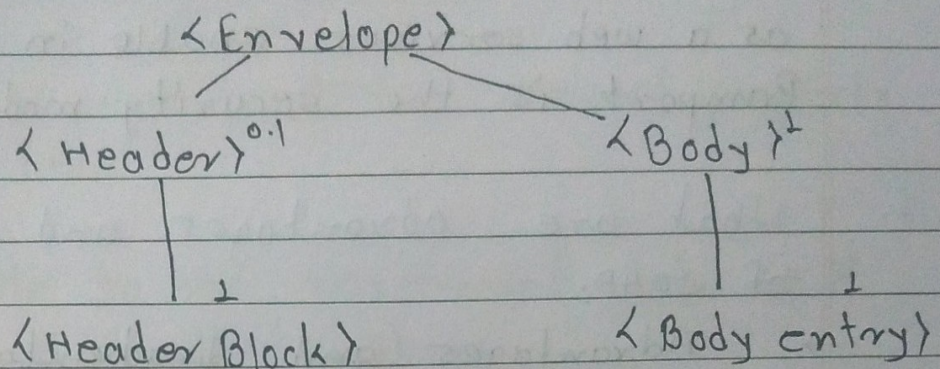 <Envelope>
<Header>0.1 <Body>1
1 1
<Header Block> <Body entry>